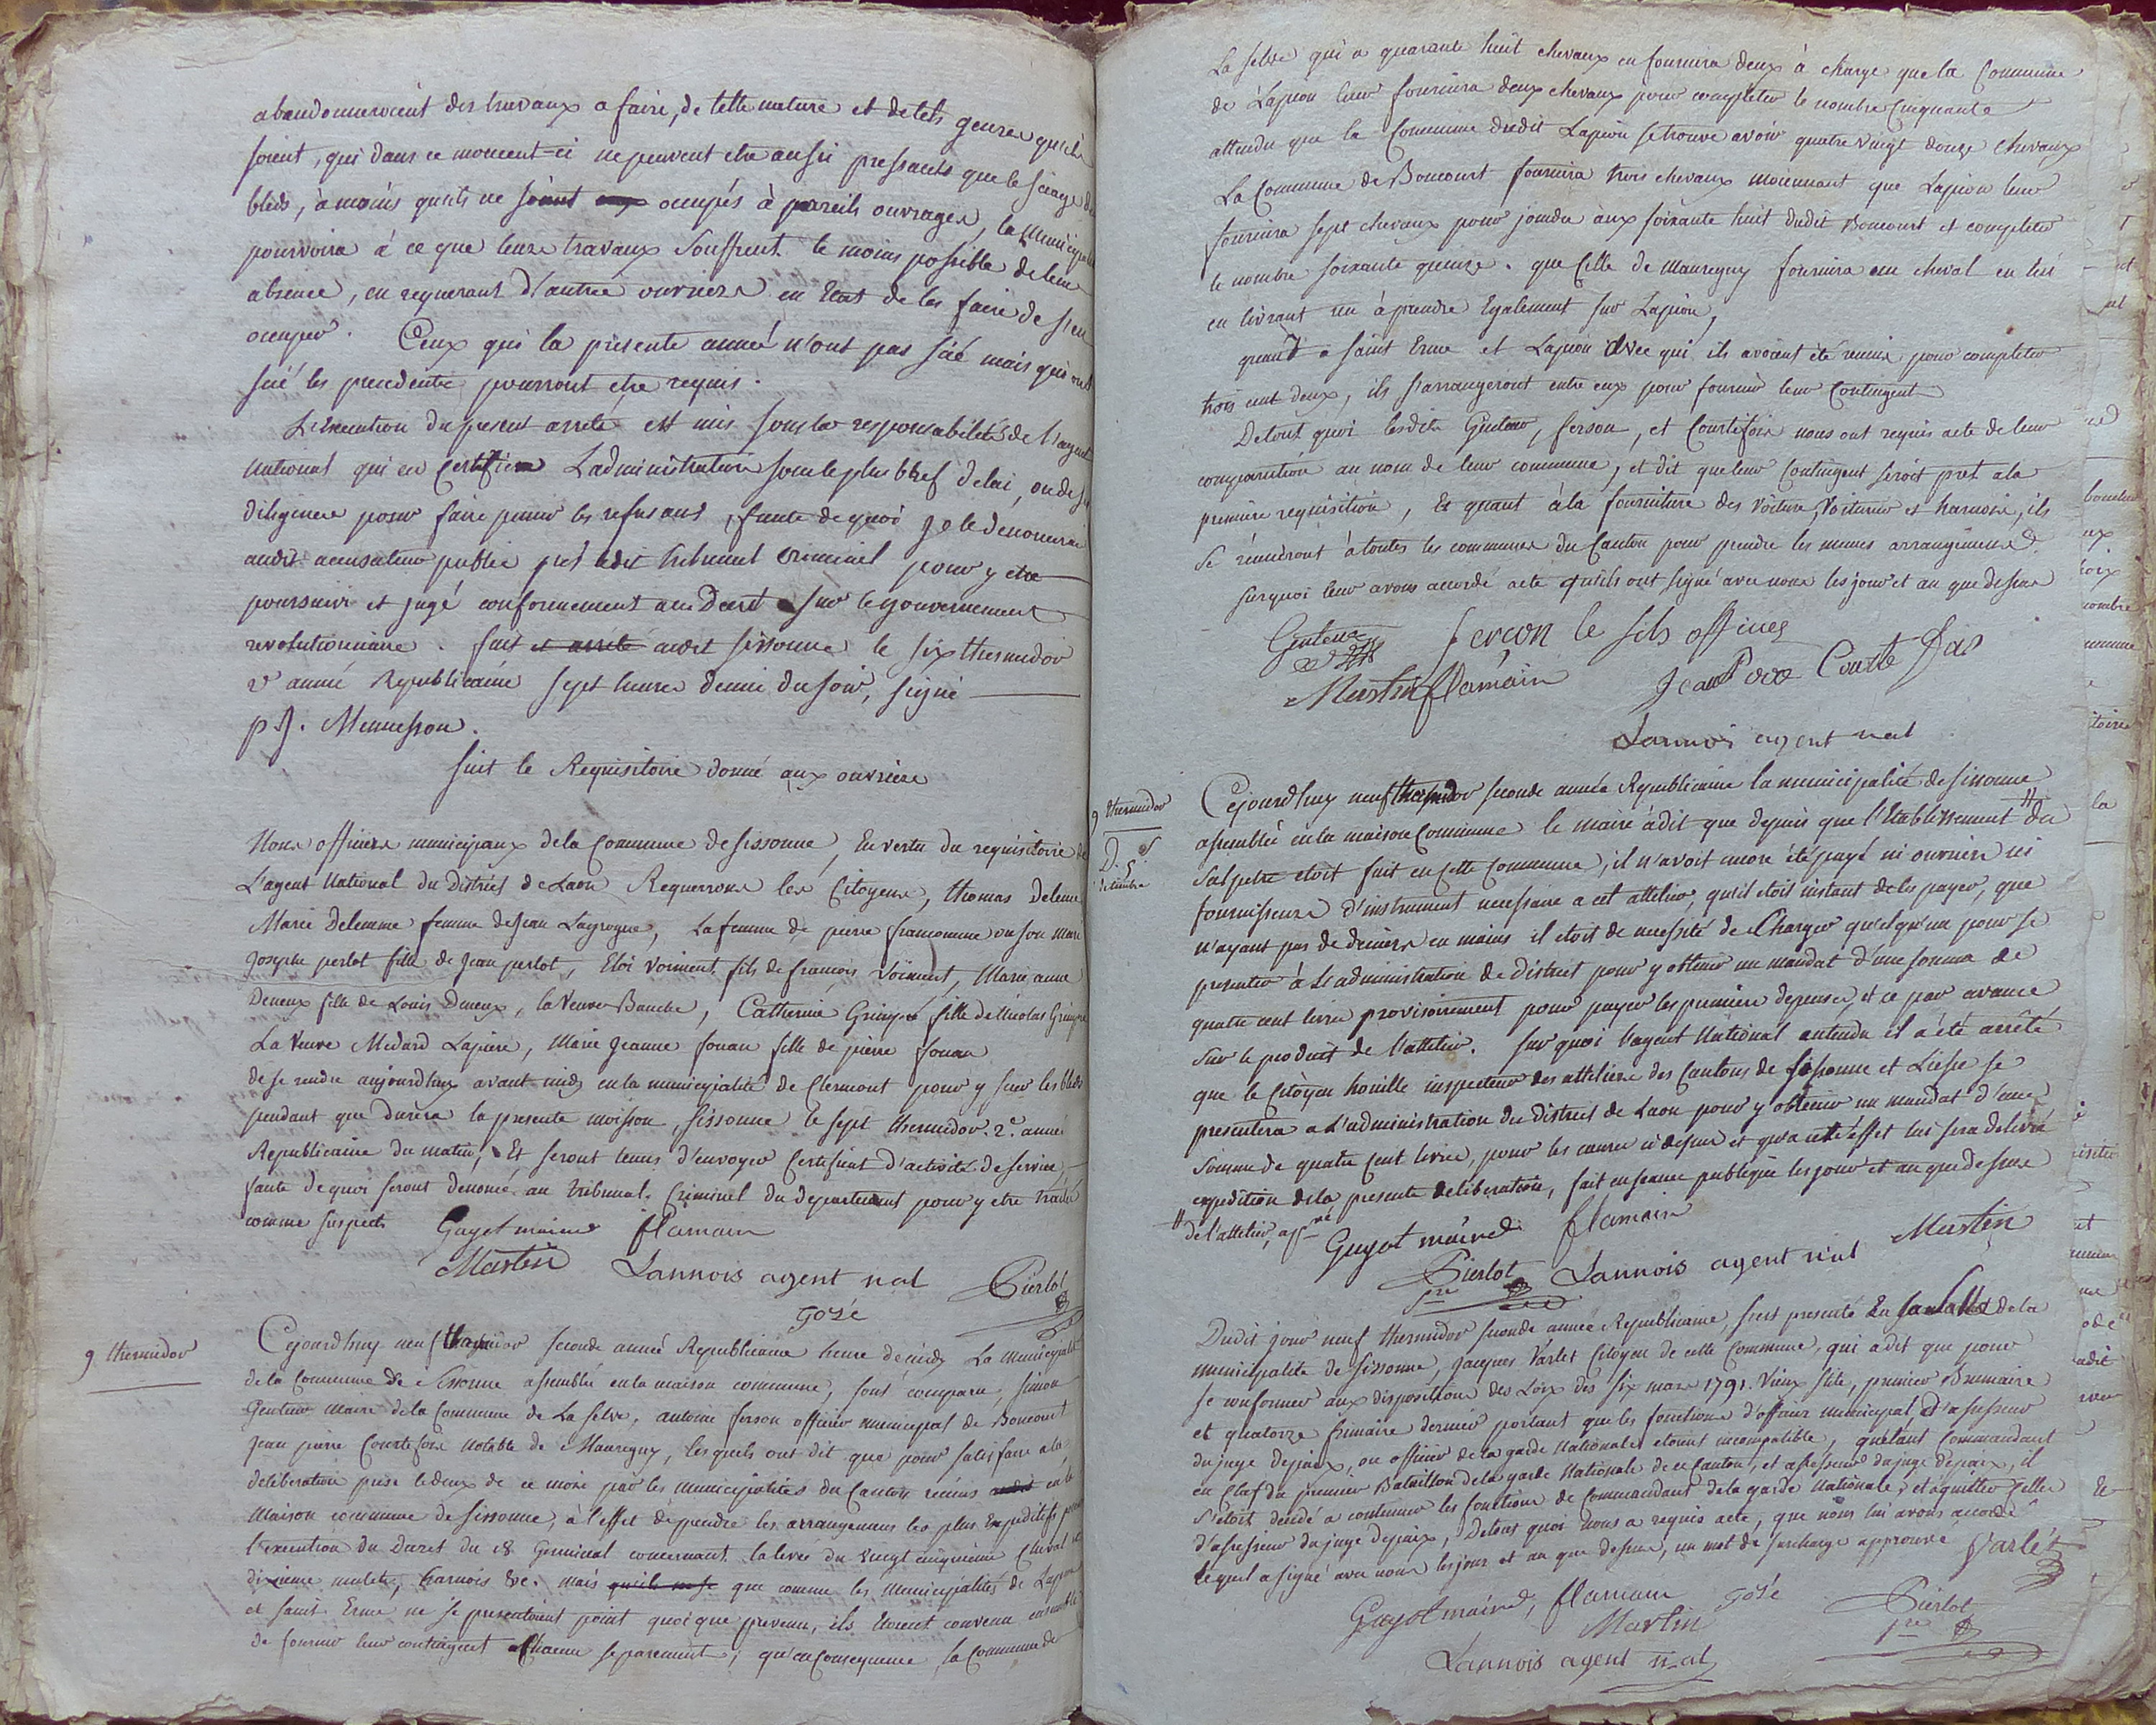 abandonneroient des travaux a faire, de telle nature et de tels genre qu'ils
soient, qui dans ce moment-ci ne peuvent etre aussi pressants que le sciage des
bleds, à moins qu'ils ne soient occupés à pareils ouvrages, la municipalité
pourvoira à ce que leurs travaux souffrent le moins possible de leur
absence, en requerant d'autres ouvriers en etat de les faire de s'en
occuper. Ceux qui la presente année n'ont pas sié mais qui ont
sié les precedentes pourront etre requis.
L'execution du present arreté est mis sous la responsabilité de l'agent
national qui en certifiera L'administration sous le plus bref delai, ou de sa
diligence pour faire punir les refusans, faute de quoi je le dénoncerai
audit accusateur public près ledit tribunal criminel pour y etre
poursuivi et jugé conformement au Decret sur le gouvernement
revolutionnaire. fait et arrêté audit sissonne le six thermidor
2e année Republicaine sept heures demie du soir, signé
p. J. Mennesson.
suit le Requisitoire donné aux ouvriers
Nous officiers municipaux de la Commune de Sissonne, En vertu du requisitoire de
L'agent National du District de Laon Requerrons les Citoyens, thomas Delemme
Marie Delemme femme de Jean Lagrogne, La femme de pierre francomme ou son mari
Josephe perlot fille de Jean perlot, Eloi voiment fils de francois voiment, Marie anne
Deneux fille de Louis Deneux, la Veuve Bauche, Catherine Gringré fille de Nicolas Gringré
La Veuve Medard Lapierre, Marie Jeanne fouan fille de pierre fouan
de se rendre aujourd'huy avant midy en la municipalité de Clermont pour y scier les bleds
pendant que durera la presente moisson, sissonne le sept thermidor 2e. année
Republicaine du matin, Et seront tenus d'envoyer Certificat d'activité de service,
faute de quoi seront denoncé au tribunal Criminel du departement pour y etre traité
comme suspects Guyot maire flamain
Martin Lannois agent nat Pierlot
gozé
9 thermidor
Cejourd'huy neuf thermidor seconde année Republicaine heure de midy La municipalité
de la Commune de Sissonne assemblée en la maison commune, sont comparu, Simon
Genteur maire de la Commune de La selve, antoine ferson officier municipal de Boncourt
Jean pierre Courtefois Notable de Mauregny, lesquels ont dit que pour satisfaire a la
deliberation prise le deux de ce mois par les municipalités du Canton reunis en la
Maison commune de sissonne, à l'effet de prendre les arrangemens les plus Expeditifs pour
l'execution du Decret du 18 Germinal concernant la levée du vingt cinquieme Cheval et
dixieme mulets, harnois &c. mais qu'ils ne se que comme les municipalités de Lapion
et saint Erme ne se presentoient point quoique prevenu, ils étoient convenu ensemble
de fournir leur contingent chacun separement, qu'en consequence la Commune de
La selve qui a quarante huit chevaux en fournira deux à charge que la Commune
de Lapion leur fournira deux chevaux pour completer le nombre Cinquante
attendu que la Commune dudit Lapion se trouve avoir quatre vingt douze chevaux
La Commune de Boncourt fournira trois chevaux moiennant que Lapion leur
fournira sept chevaux pour joindre aux soixante huit dudit Boncourt et completer
le nombre soixante quinze. que Celle de Mauregny fournira un cheval en lui
en livrant un à prendre Egalement sur Lapion,
quand a saint Erme et Lapion avec qui ils avoient été reunis pour completer
trois cent deux, ils s'arrangeront entre eux pour fournir leur Contingent
De tout quoi lesdits Genteur, ferson, et Courtefois nous ont requis acte de leur
comparution au nom de leur commune, et dit que leur Contingent seroit pret a la
premiere requisition, Et quant à la fourniture des voiture, Voiturier et harnois, ils
se reuniront à toutes les communes du Canton pour prendre les memes arrangemens
surquoi leur avons accordé acte qu'ils ont signé avec nous les jour et an que dessus
Genteur fercon le fils officier
Martin flamain Jean Courte fois
Lannois agent nat
9 thermidor
Cejourd'huy neuf thermidor seconde année Republicaine la municipalité de sissonne
assemblée en la maison Commune le maire à dit que depuis que l'Etablissement du
salpetre etoit fait en cette Commune, il n'avoit encore été payé ni ouvriers ni
fournisseurs d'instrument necessaire a cet attelier, qu'il etoit instant de les payer, que
n'ayant pas de deniers en mains il etoit de necessité de Charger quelqu'un pour se
presenter à l'administration de district pour y obtenir un mandat d'une somme de
quatre cent livres provisoirement pour payer les premieres depenses, et ce par avance
sur le produit de l'attelier. surquoi l'agent National entendu il a été arrêté
que le Citoyen houille inspecteur des atteliers des Cantons de sissonne et Liesse se
presentera a L'administration du District de Laon pour y obtenir un mandat d'une
somme de quatre Cent livres, pour les causes ci dessus et qu'a cet effet lui sera delivré
expedition de la presente deliberation, fait en seance publique les jour et an que dessus
de l'attelier, Guyot maire flamain Martin
Pierlot Lannois agent n'al
Dudit jour neuf thermidor seconde année Republicaine, s'est presenté de la
municipalité de sissonne, Jacques Varlet Citoyen de cette Commune, qui a dit que pour
se conformer aux dispositions des Loix des six mars 1791. Vieux stile, premier Brumaire
et quatorze frimaire dernier portant que les fonctions d'officier municipal, d'assesseur
du juge depaix, ou officier de la garde Nationale etoient incompatible, qu'étant Commandant
en Chef du premier Bataillon de la garde Nationale de ce Canton, et assesseur du juge depaix, il
s'étoit decidé a continuer les fonctions de Commandant de la garde Nationale, et a quitter Celle
d'assesseur du juge depaix, De tout quoi Nous a requis acte, que nous lui avons accordé
lequel a signé avec nous les jour et an que dessus, un mot de surcharge approuvé Varlét
Guyot maire, flamain gozé Pierlot
Martin
Lannois agent n-al